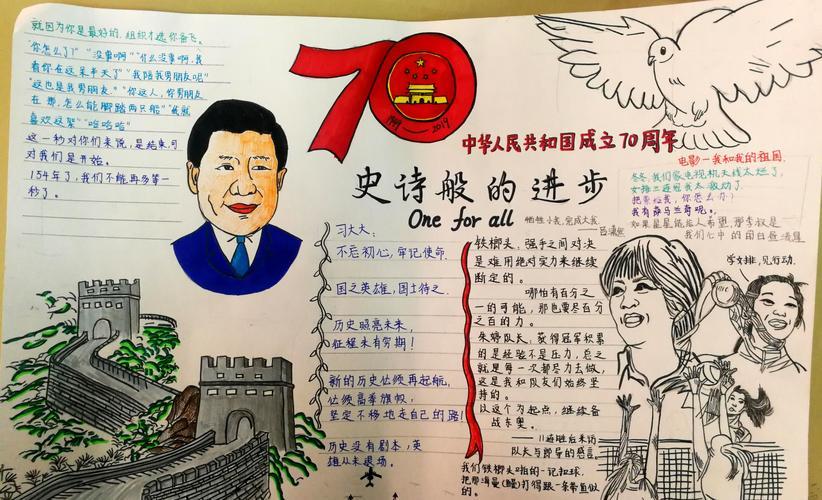 就因为你是最好的,组织才选你奋飞。
"你怎么了?""没事啊""什么没事啊,我
看你在这呆半天了""我陪我男朋友呢"
"这也是我男朋友。""你这人,你男朋友
在那,怎么能脚踏两只船""我就
喜欢这架""哈哈哈"
这一秒对你们来说,是结束,可
对我们是开始。
154年了,我们不能再多等一
秒了。
70
1949—2019
中华人民共和国成立70周年
史诗般的进步
One for all
牺牲小我,完成大我。
电影一我和我的祖国.
冬冬,我们家电视机天线太烂了,
女排三连冠我太激动了.
把票给我,你怎么办?
我有萨马兰奇呢。
我们心中的白昼流星
习大大:
不忘初心,牢记使命.
国之英雄,国士待之.
历史照亮未来,
征程未有穷期!
新的历史依须再起航,
依须高举旗帜,
坚定不移地走自己的路!
历史没有剧本,英
雄从未退场。
铁榔头,强手之间对决
是难用绝对实力来继续
断定的。
哪怕有百分之
一的可能,那也要尽百分
之百的力。
朱婷队长,获得冠军积累
的是经验不是压力,总之
就是每一次都尽力去做,
这是我和队友们始终坚
持的。
以这个为起点,继续备
战东奥。
——11连胜后采访
队长与郎导的感言。
我们铁榔头啪的一记扣球.
学女排,见行动.